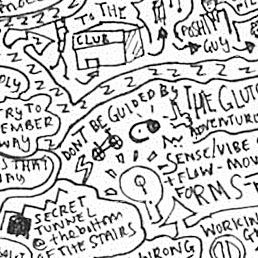 TO THE
CLUB
POSH
GUY
OLY
TRY TO
EMBER
WAY
DON'T BE GUIDED BY
THE GLUT
ADVENTURE
SENSE/VIBE
FLOW-MOV
FORMS-
THAT
SECRET
TUNNEL
@ the bottom
OF THE STAIRS
WORKIN
WRONG